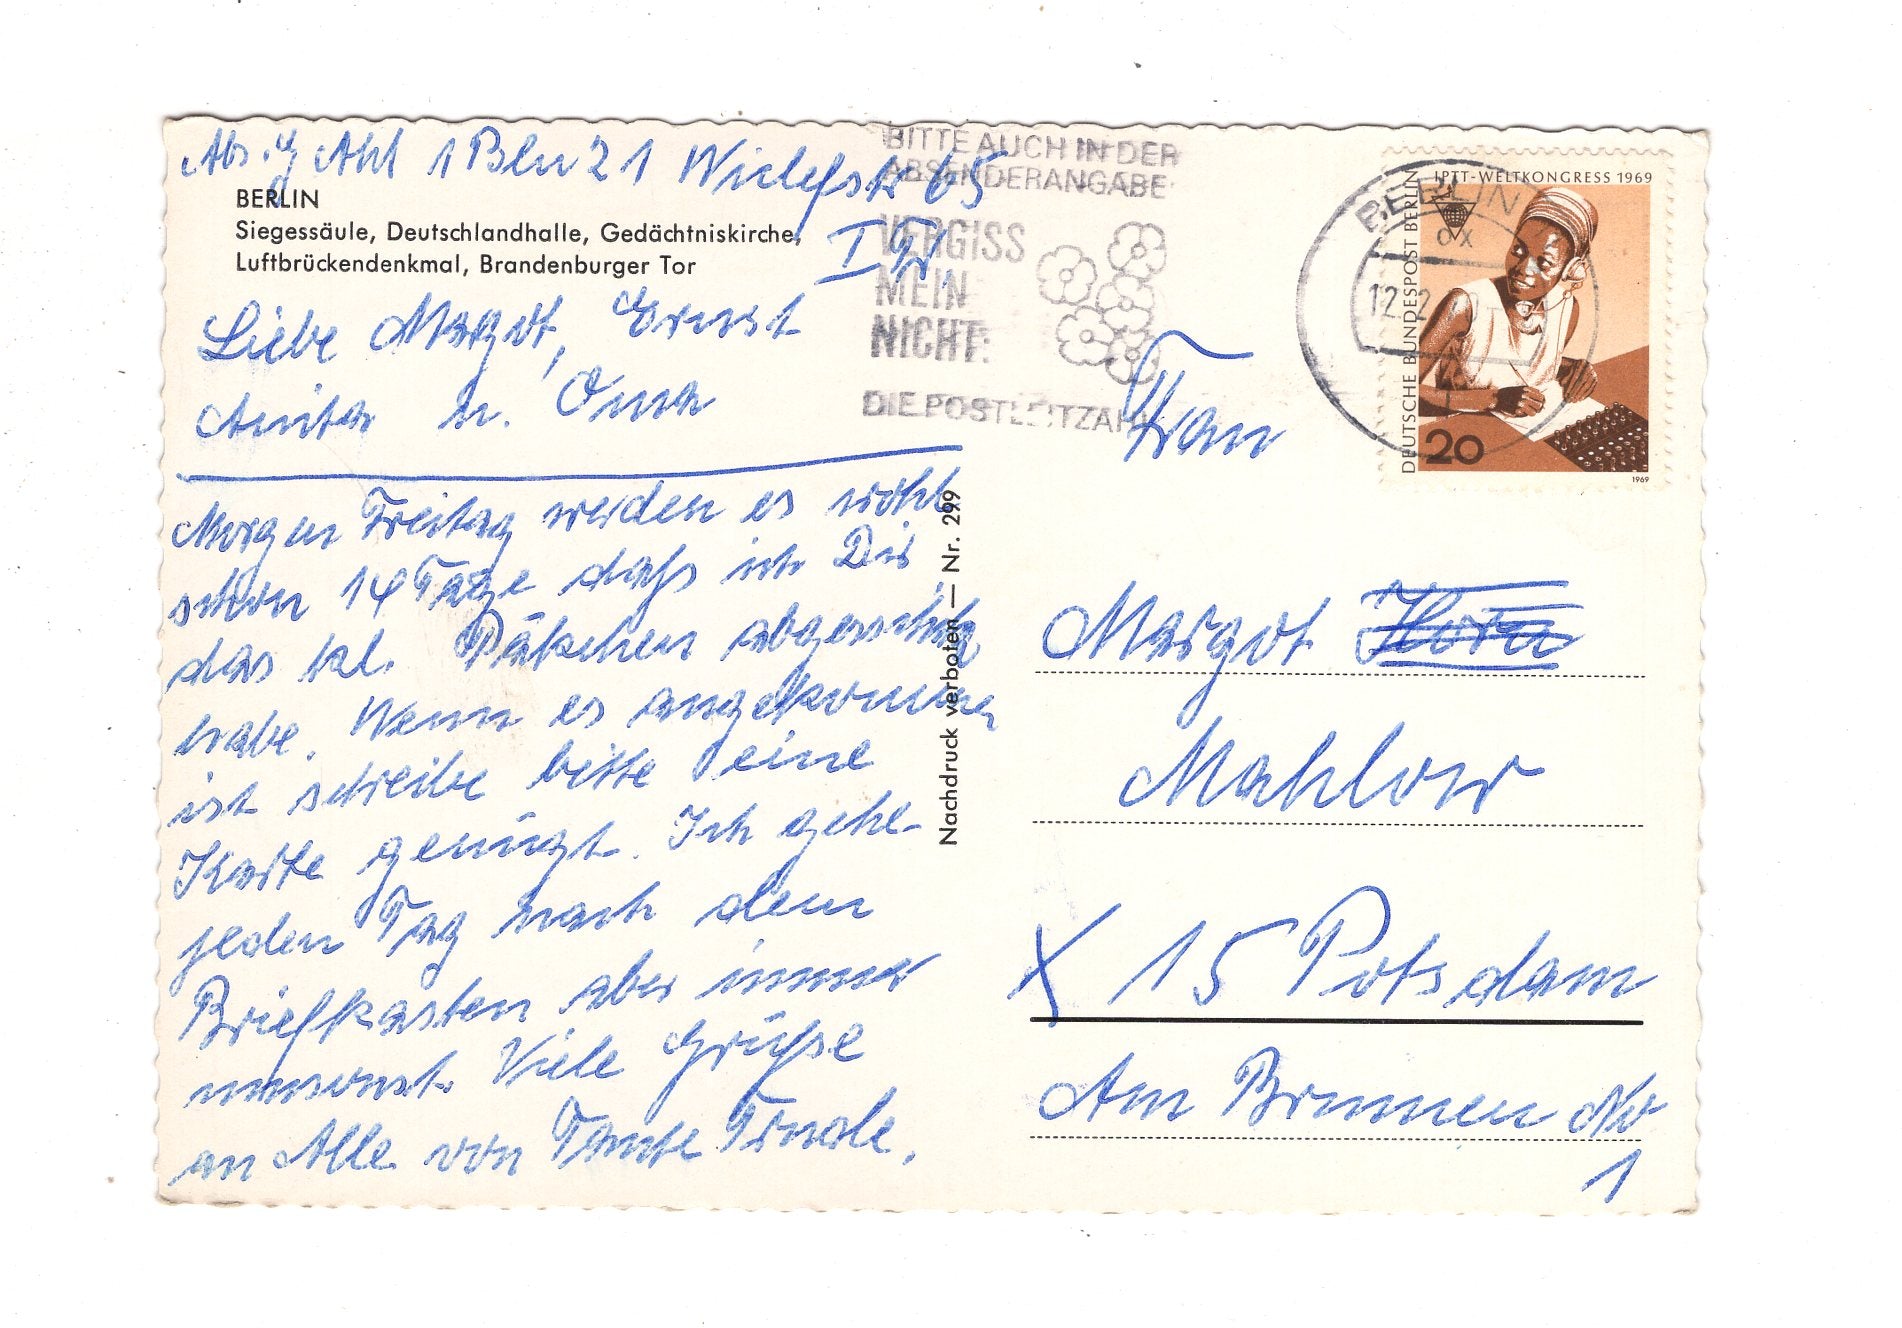 Abs. G Ahl 1 Bln 21 Wiclefstr 65
I W
BERLIN
Siegessäule, Deutschlandhalle, Gedächtniskirche,
Luftbrückendenkmal, Brandenburger Tor
Liebe Margot, Ernst
Anita u. Oma
Morgen Freitag werden es wohl
schon 14 Tage daß ich Dir
das kl. Päkchen abgeschikt
habe. Wenn es angekommen
ist schreibe bitte eine
Karte genügt. Ich gehe
jeden Tag nach dem
Briefkasten aber immer
umsonst. Viele Grüße
an Alle von Tante Trude.
Nachdruck verboten — Nr. 299
BITTE AUCH IN DER
ABSENDERANGABE
VERGISS
MEIN
NICHT:
DIE POSTLEITZAHL
BERLIN
12.2
IPTT-WELTKONGRESS 1969
DEUTSCHE BUNDESPOST BERLIN
20
1969
Frau
Margot Horn
Mahlow
X 15 Potsdam
Am Brunnen No
1